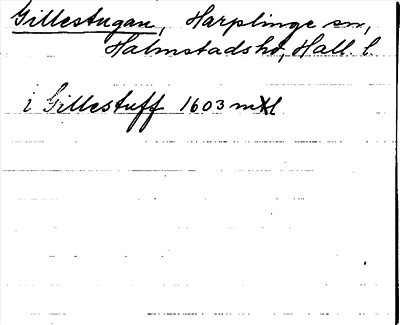 Gillestugan, Harplinge sn,
Halmstads hd, Hall. l.
i Gillestuff 1603 mtl